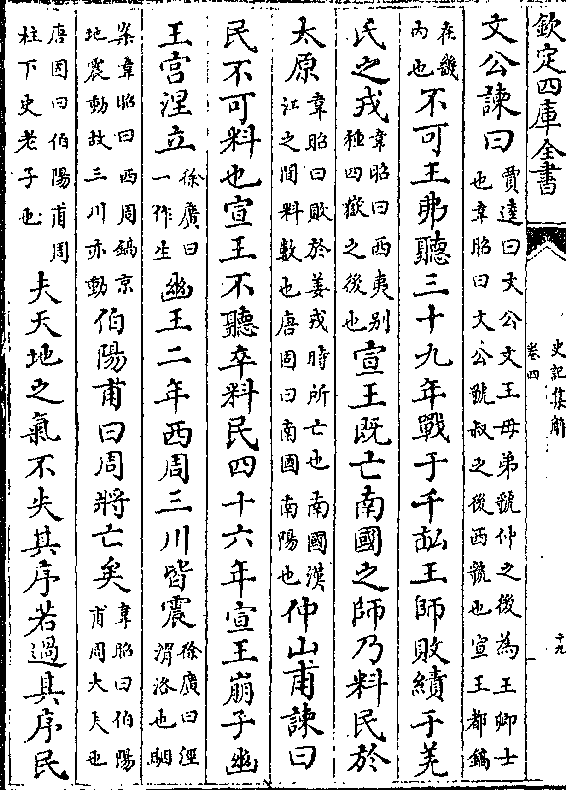 欽定四庫全書
史記集解
卷四
十九
文公諫曰賈逵曰文公文王母弟虢仲之後為王卿士也韋昭曰文公虢叔之後西虢也宣王都鎬
在畿內也不可王弗聽三十九年戰于千畝王師敗績于羌
氏之戎韋昭曰西夷别種四嶽之後也宣王既亡南國之師乃料民於
太原韋昭曰敗於姜戎時所亡也南國漢江之間料數也唐固曰南國南陽也仲山甫諫曰
民不可料也宣王不聽卒料民四十六年宣王崩子幽
王宫涅立徐廣曰一作生幽王二年西周三川皆震徐廣曰涇渭洛也駰
案韋昭曰西周鎬京地震動故三川亦動伯陽甫曰周將亡矣韋昭曰伯陽甫周大夫也
唐固曰伯陽甫周柱下史老子也夫天地之氣不失其序若過其序民